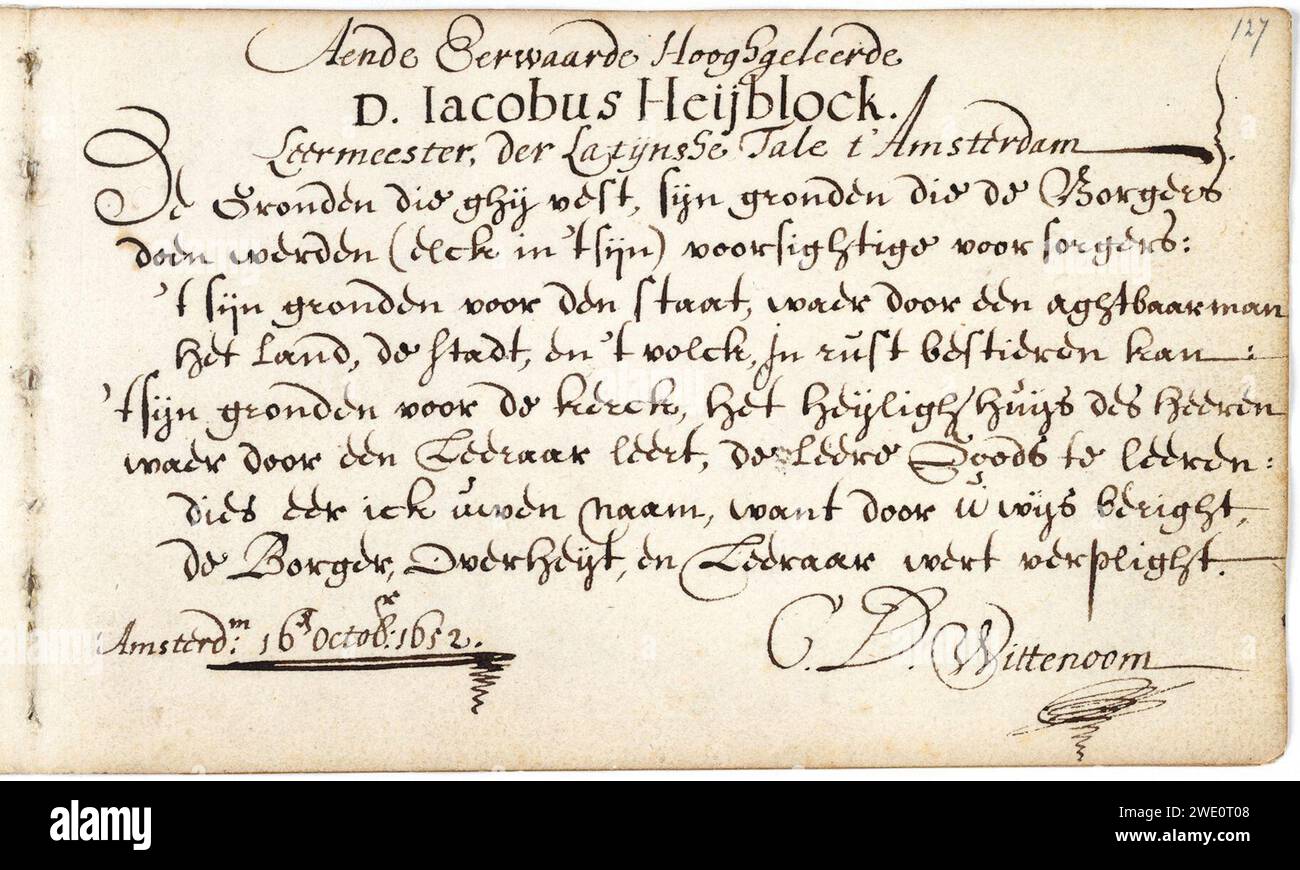 127
Aende Eerwaarde Hooghgeleerde
D. Iacobus Heijblock.
Leermeester, der Latijnshe Tale t'Amsterdam
De Gronden die ghij vest, sijn gronden die de Borgers
doen werden (elck in 't sijn) voorsightige voor sorgers:
't sijn gronden voor den staat, waer door een aghtbaar man
het Land, de stadt, en 't volck, In rust bestieren kan:
't sijn gronden voor de kerck, het heijligh huijs des heeren
waer door een Leeraar leert, de leere Goods te leeren:
dies eer ick uwen naam, want door u wijs beright,
de Borger, Overheijt, en Leeraar wert verplight.
Amsterd.m 16 Octob.r 1652.
C. D. Wittenoom
alamy
Image ID: 2WE0T08
www.alamy.com